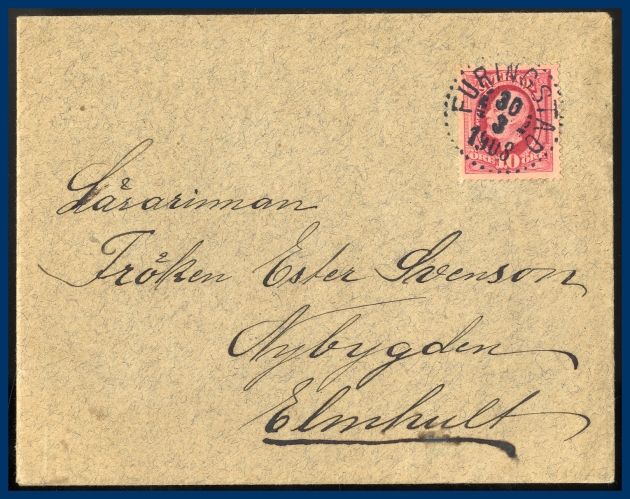 FURINGSTAD
30
3
1908
ÖRE 10 ÖRE
Lärarinnan
Fröken Ester Svenson
Nybygden
Elmhult